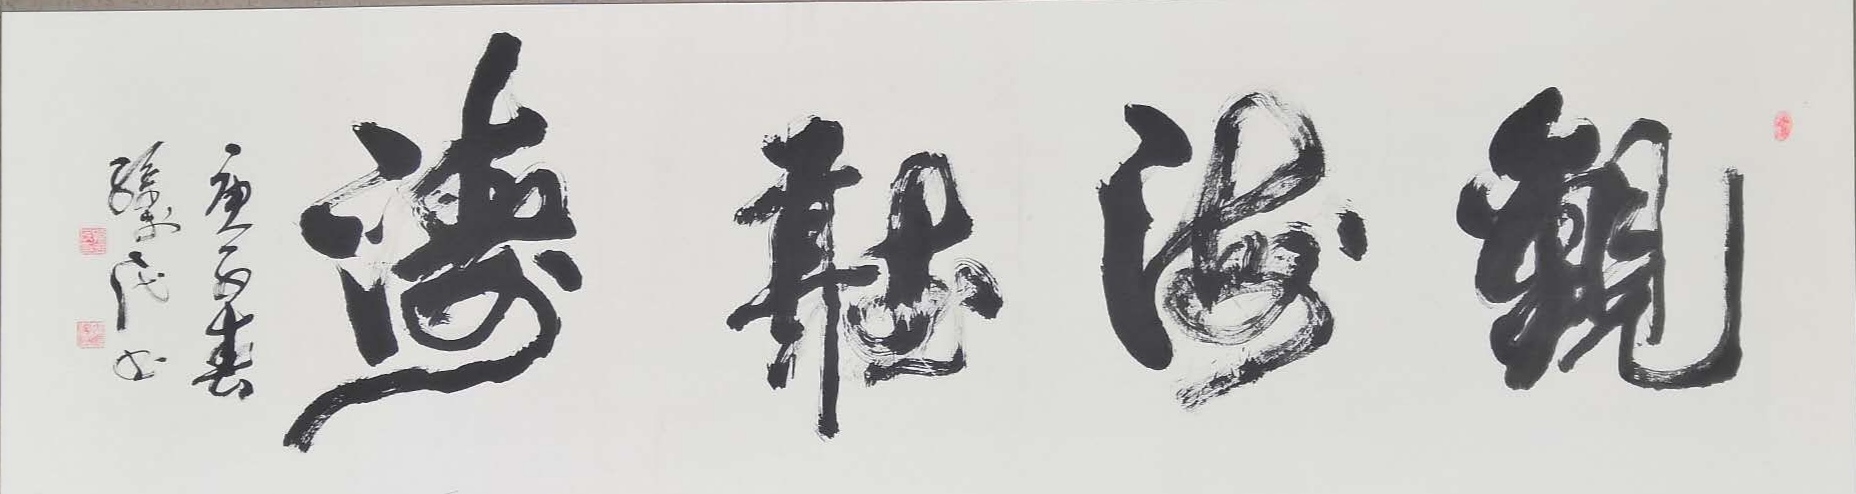 觀海聽濤
庚子春
孫武書